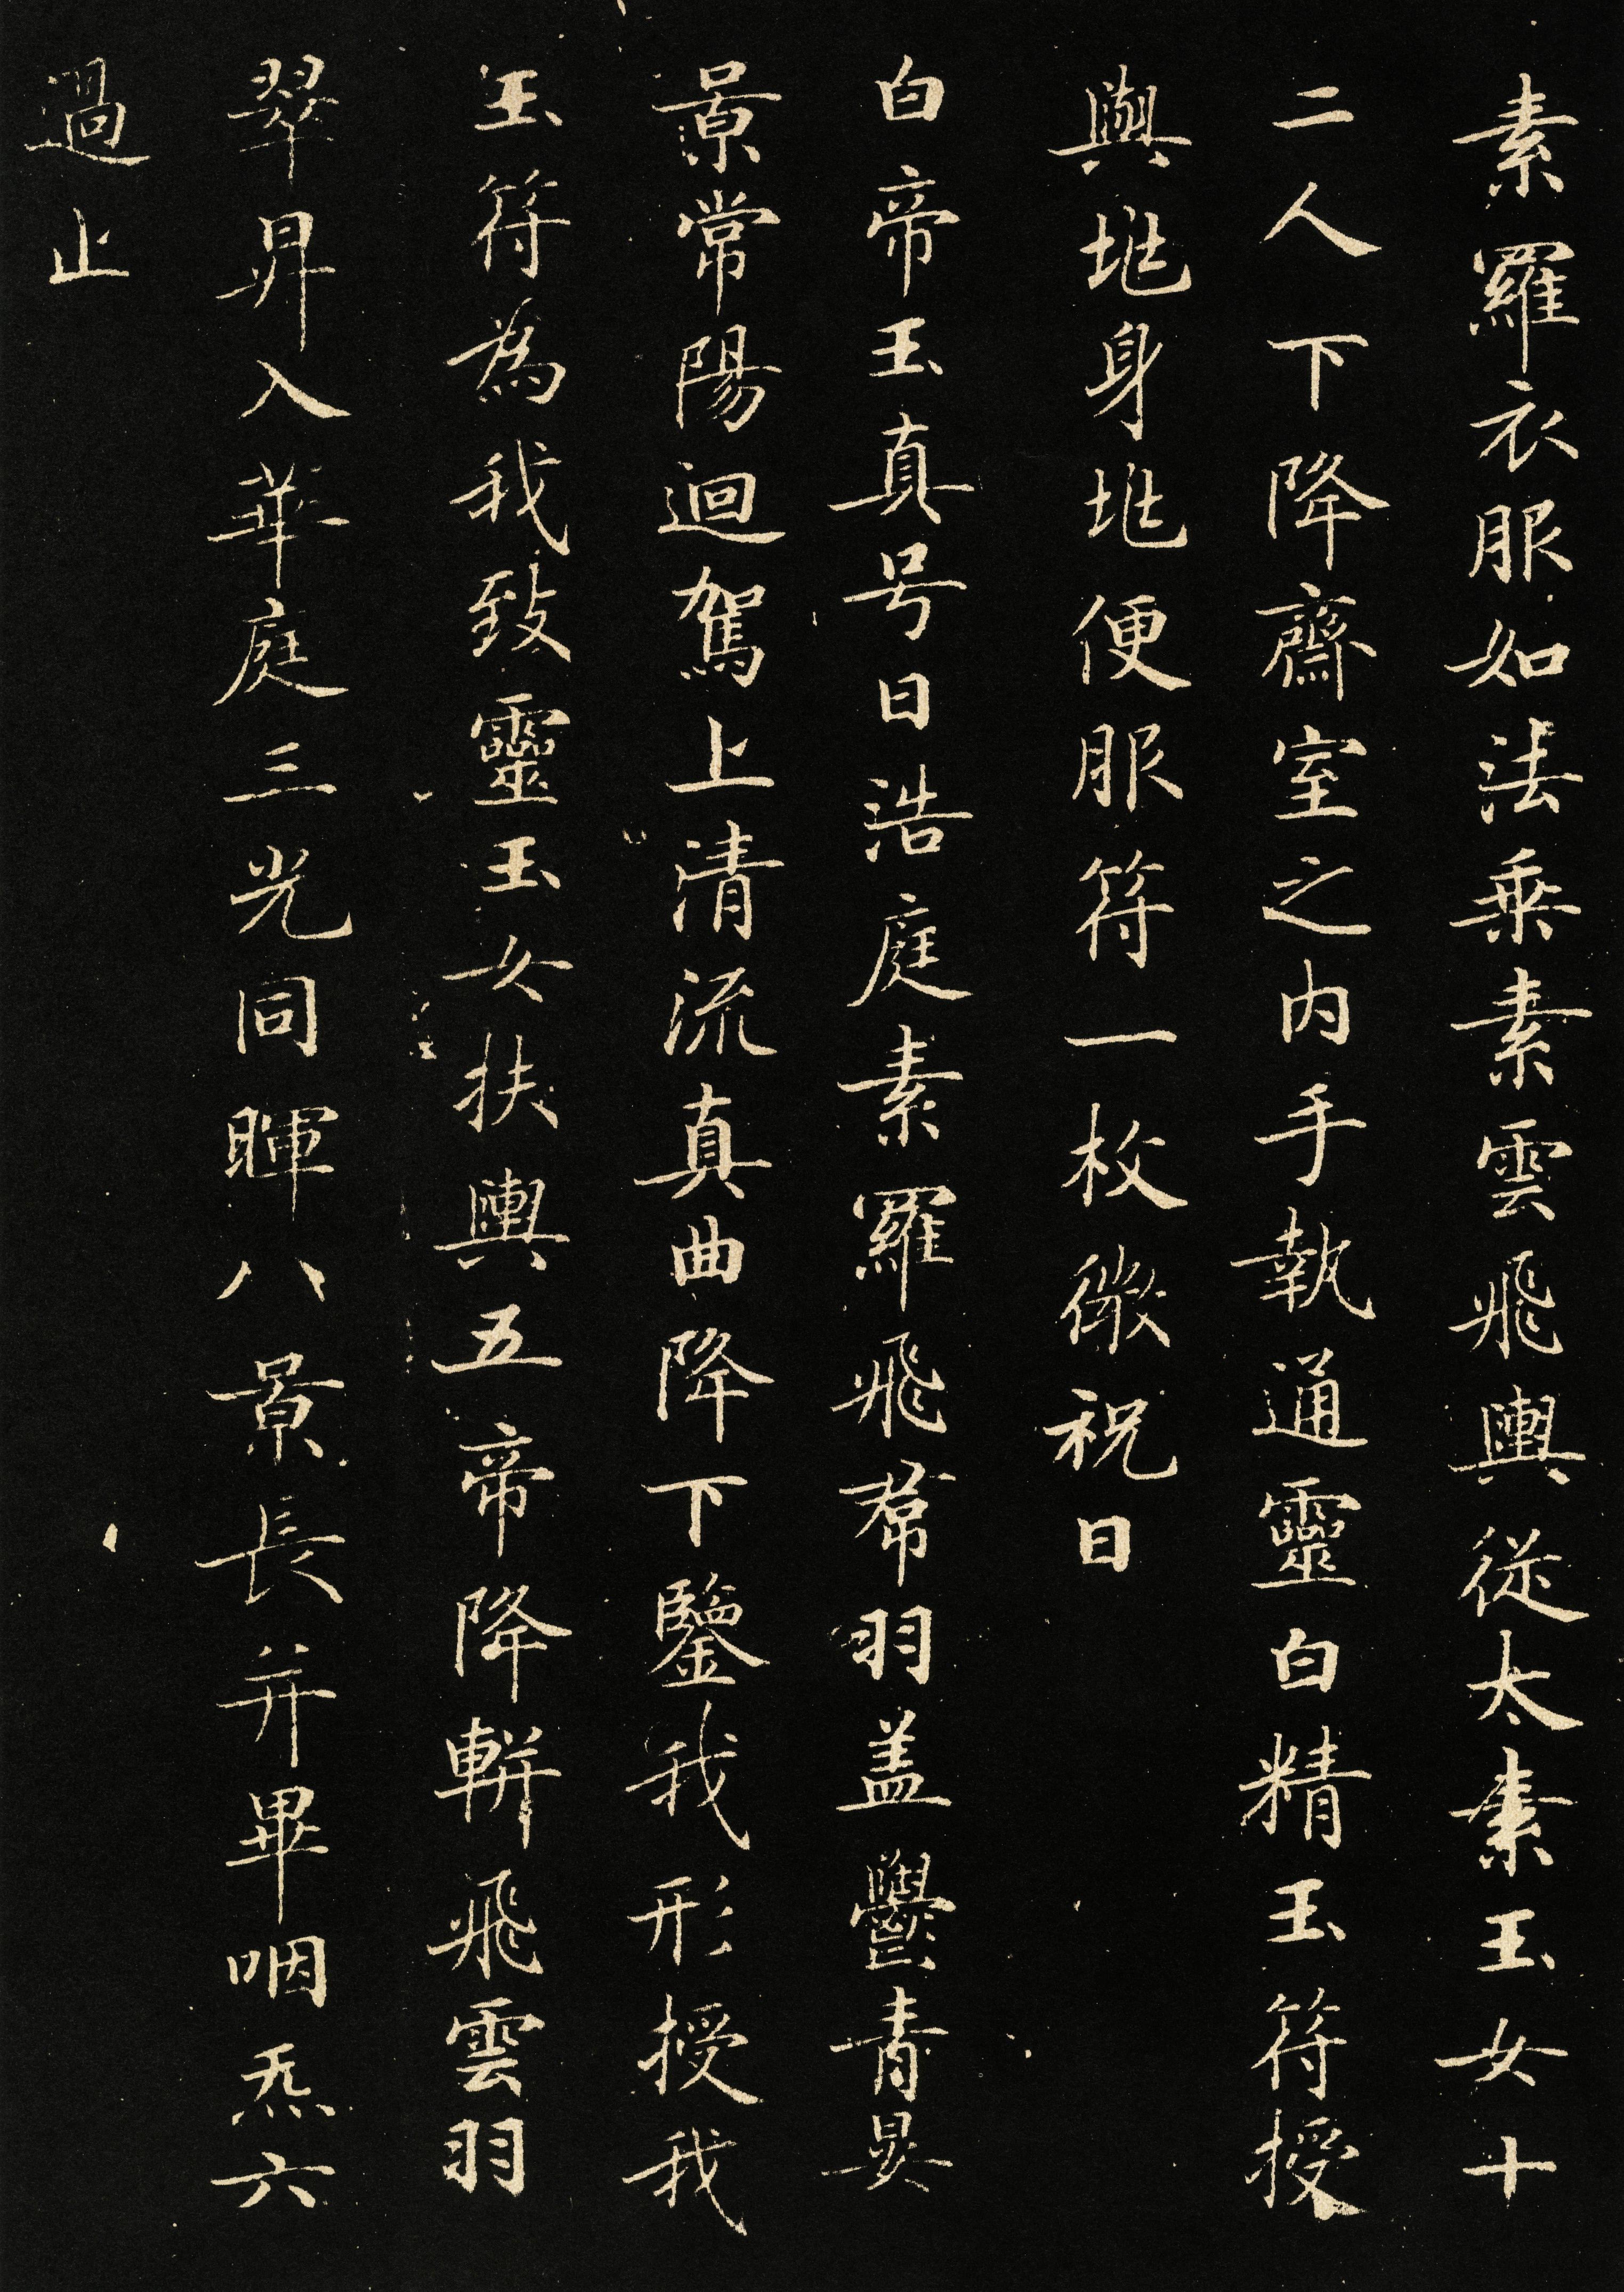 素羅衣服如法乘素雲飛輿從太素玉女十
二人下降齋室之内手執通靈白精玉符授
與兆身兆便服符一枚微祝曰
白帝玉真号曰浩庭素羅飛帬羽盖欝青
景常陽迴駕上清流真曲降下鑒我形授我
玉符為我致靈玉女扶輿五帝降軿飛雲羽
翠昇入華庭三光同暉八景長并畢咽炁六
過止